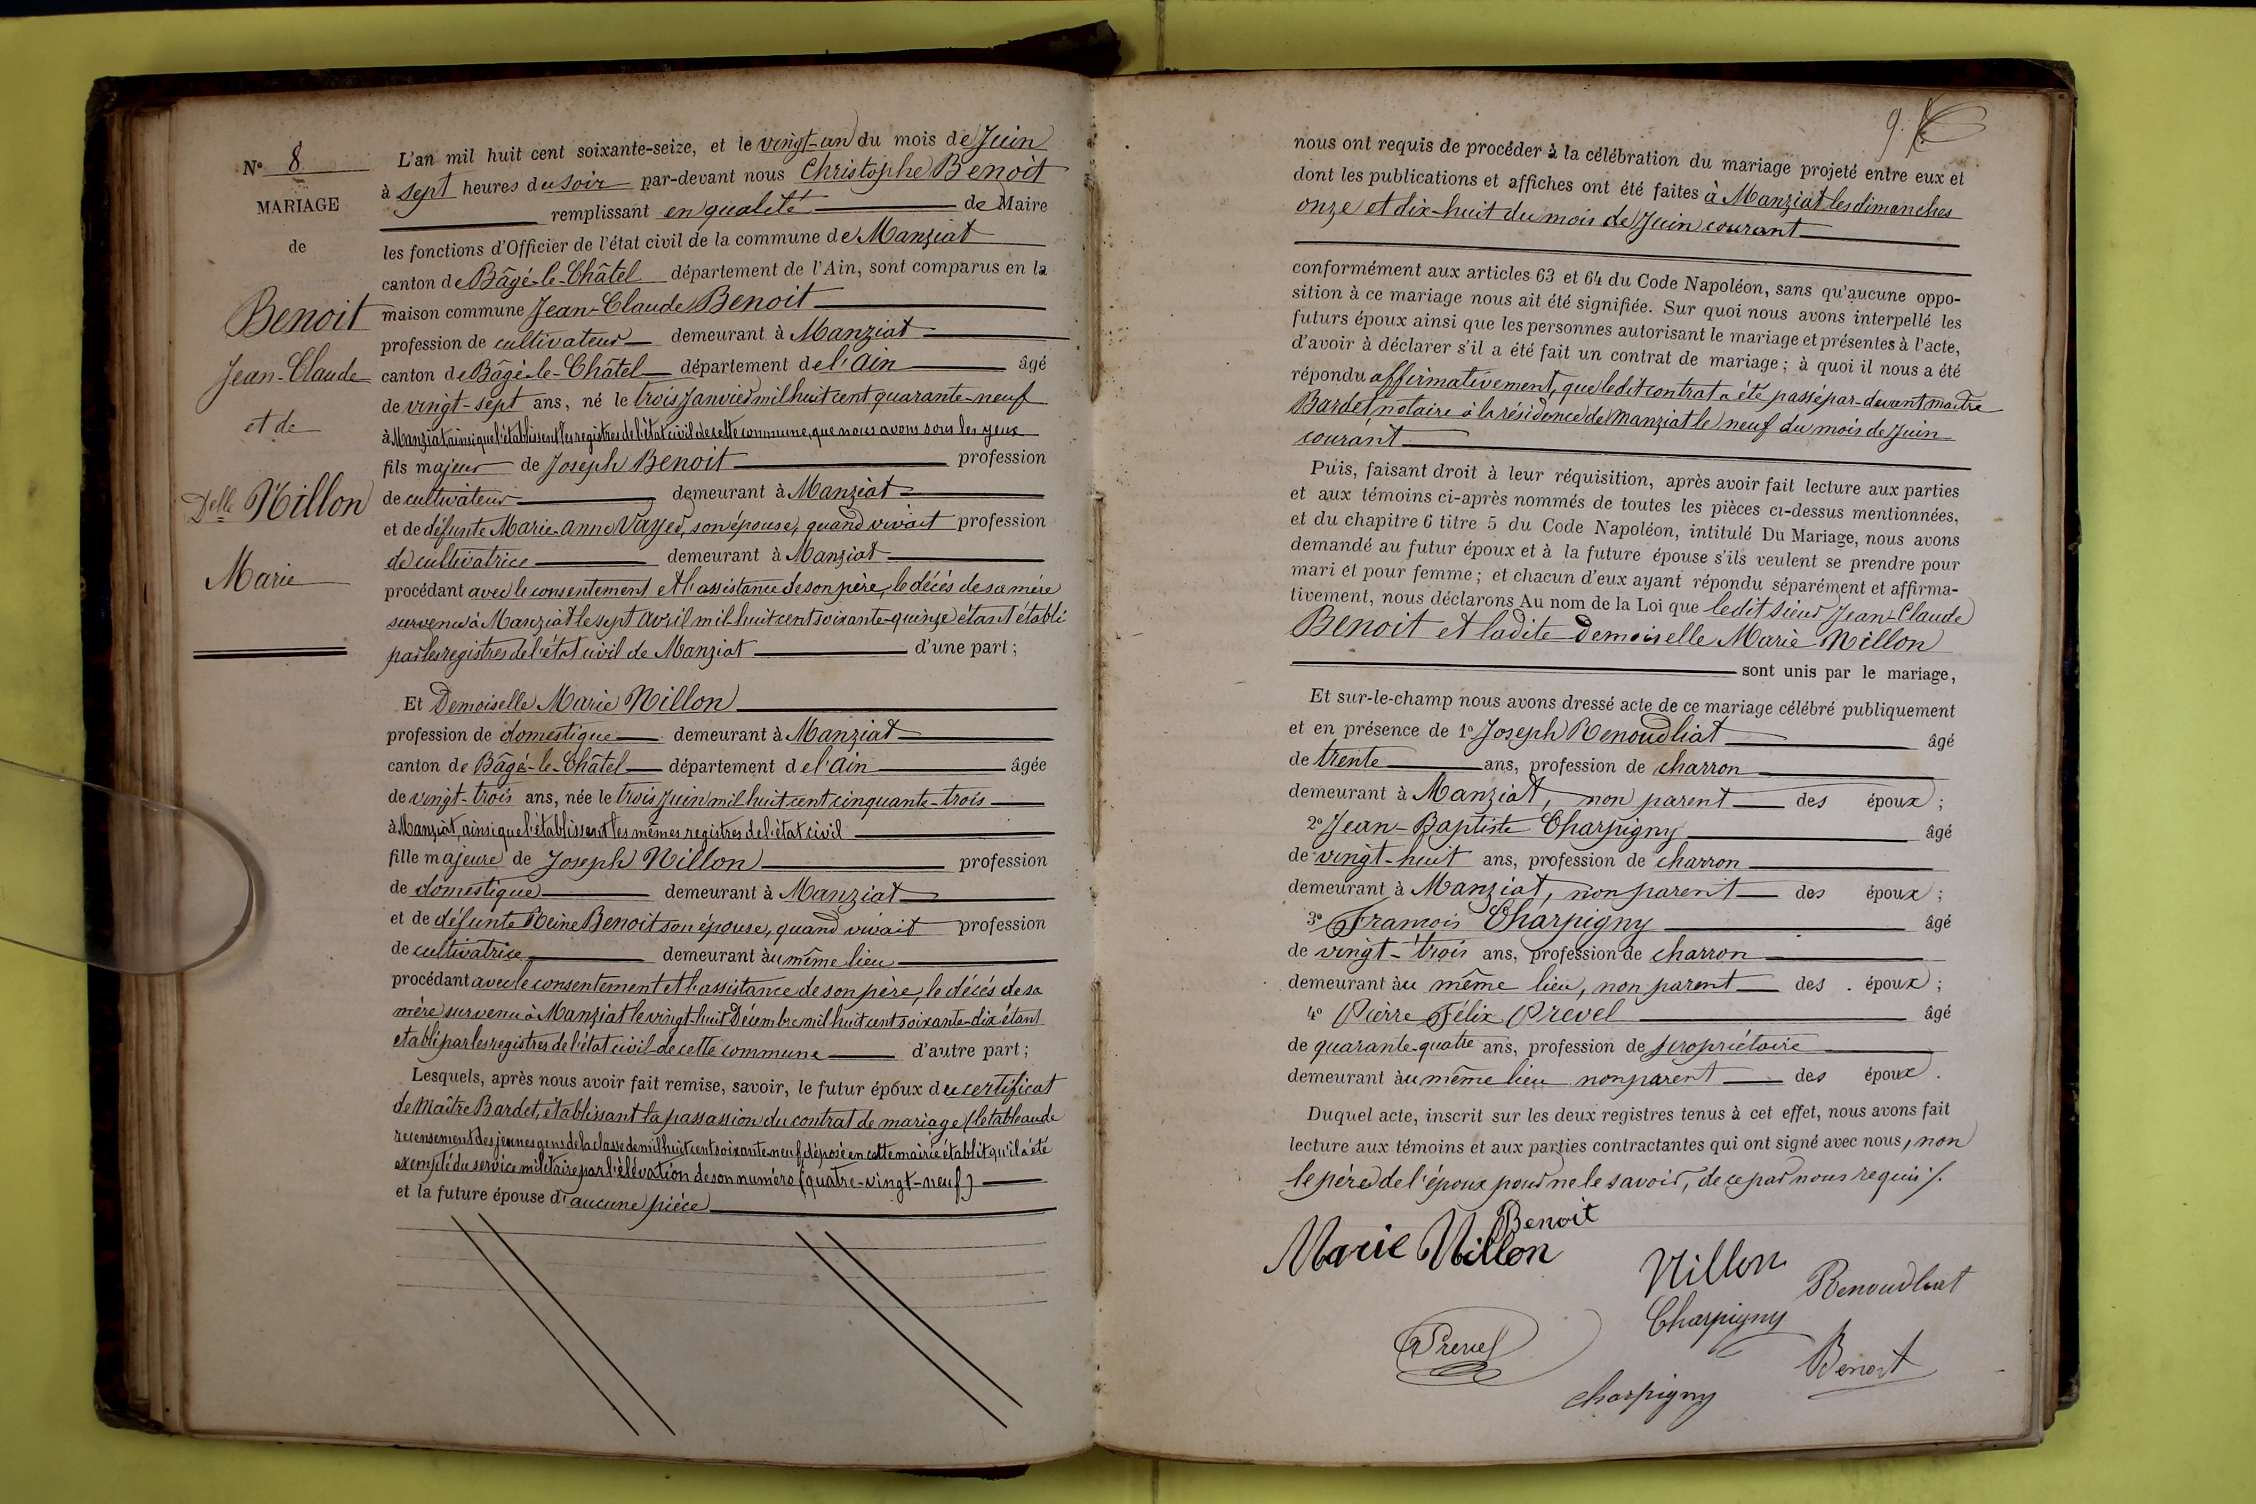 N° 8
MARIAGE
de
Benoit
Jean-Claude
et de
Delle Nillon
Marie
L'an mil huit cent soixante-seize, et le vingt-un du mois de Juin
à sept heures du soir par-devant nous Christophe Benoit
remplissant en qualité de Maire
les fonctions d'Officier de l'état civil de la commune de Manziat
canton de Bâgé-le-Châtel département de l'Ain, sont comparus en la
maison commune Jean-Claude Benoit
profession de cultivateur demeurant à Manziat
canton de Bâgé-le-Châtel département de l'Ain âgé
de vingt-sept ans, né le trois Janvier mil huit cent quarante-neuf
à Manziat, ainsi que l'établissent les registres de l'état civil de cette commune, que nous avons sous les yeux
fils majeur de Joseph Benoit profession
de cultivateur demeurant à Manziat
et de défunte Marie-Anne Vayer, son épouse, quand vivait profession
de cultivatrice demeurant à Manziat
procédant avec le consentement et l'assistance de son père, le décés de sa mère
survenu à Manziat le sept Avril mil huit cent soixante-quinze étant établi
par les registres de l'état civil de Manziat d'une part ;
Et Demoiselle Marie Nillon
profession de domestique demeurant à Manziat
canton de Bâgé-le-Châtel département de l'Ain âgée
de vingt-trois ans, née le trois Juin mil huit cent cinquante-trois
à Manziat, ainsi que l'établissent les mêmes registres de l'état civil
fille majeure de Joseph Nillon profession
de domestique demeurant à Manziat
et de défunte Reine Benoit son épouse, quand vivait profession
de cultivatrice demeurant au même lieu
procédant avec le consentement et l'assistance de son père, le décés de sa
mère survenu à Manziat le vingt-huit Décembre mil huit cent soixante-dix étant
établi par les registres de l'état civil de cette commune d'autre part ;
Lesquels, après nous avoir fait remise, savoir, le futur époux du certificat
de Maître Bardet, établissant la passassion du contrat de mariage (le tableau de
recensement des jeunes gens de la classe de mil huit cent soixante-neuf, déposé en cette mairie établit qu'il a été
exempté du service militaire par l'élévation de son numéro (quatre-vingt-neuf)
et la future épouse d'aucune pièce
9.
nous ont requis de procéder à la célébration du mariage projeté entre eux et
dont les publications et affiches ont été faites à Manziat les dimanches
onze et dix-huit du mois de Juin courant
conformément aux articles 63 et 64 du Code Napoléon, sans qu'aucune oppo-
sition à ce mariage nous ait été signifiée. Sur quoi nous avons interpellé les
futurs époux ainsi que les personnes autorisant le mariage et présentes à l'acte,
d'avoir à déclarer s'il a été fait un contrat de mariage ; à quoi il nous a été
répondu affirmativement, que ledit contrat a été passé par-devant maître
Bardet, notaire à la résidence de Manziat le neuf du mois de Juin
courant
Puis, faisant droit à leur réquisition, après avoir fait lecture aux parties
et aux témoins ci-après nommés de toutes les pièces ci-dessus mentionnées,
et du chapitre 6 titre 5 du Code Napoléon, intitulé Du Mariage, nous avons
demandé au futur époux et à la future épouse s'ils veulent se prendre pour
mari et pour femme ; et chacun d'eux ayant répondu séparément et affirma-
tivement, nous déclarons Au nom de la Loi que ledit sieur Jean-Claude
Benoit et ladite Demoiselle Marie Nillon
sont unis par le mariage,
Et sur-le-champ nous avons dressé acte de ce mariage célébré publiquement
et en présence de 1° Joseph Renoudliat âgé
de trente ans, profession de charron
demeurant à Manziat, non parent des époux ;
2° Jean-Baptiste Charpigny âgé
de vingt-huit ans, profession de charron
demeurant à Manziat, non parent des époux ;
3° François Charpigny âgé
de vingt-trois ans, profession de charron
demeurant au même lieu, non parent des époux ;
4° Pierre Félix Prevel âgé
de quarante-quatre ans, profession de propriétaire
demeurant au même lieu non parent des époux.
Duquel acte, inscrit sur les deux registres tenus à cet effet, nous avons fait
lecture aux témoins et aux parties contractantes qui ont signé avec nous, non
le père de l'époux pour ne le savoir, de ce par nous requis /.
Benoit
Marie Nillon
Nillon
Renoudliat
Charpigny
Prevel
Benoit
Charpigny